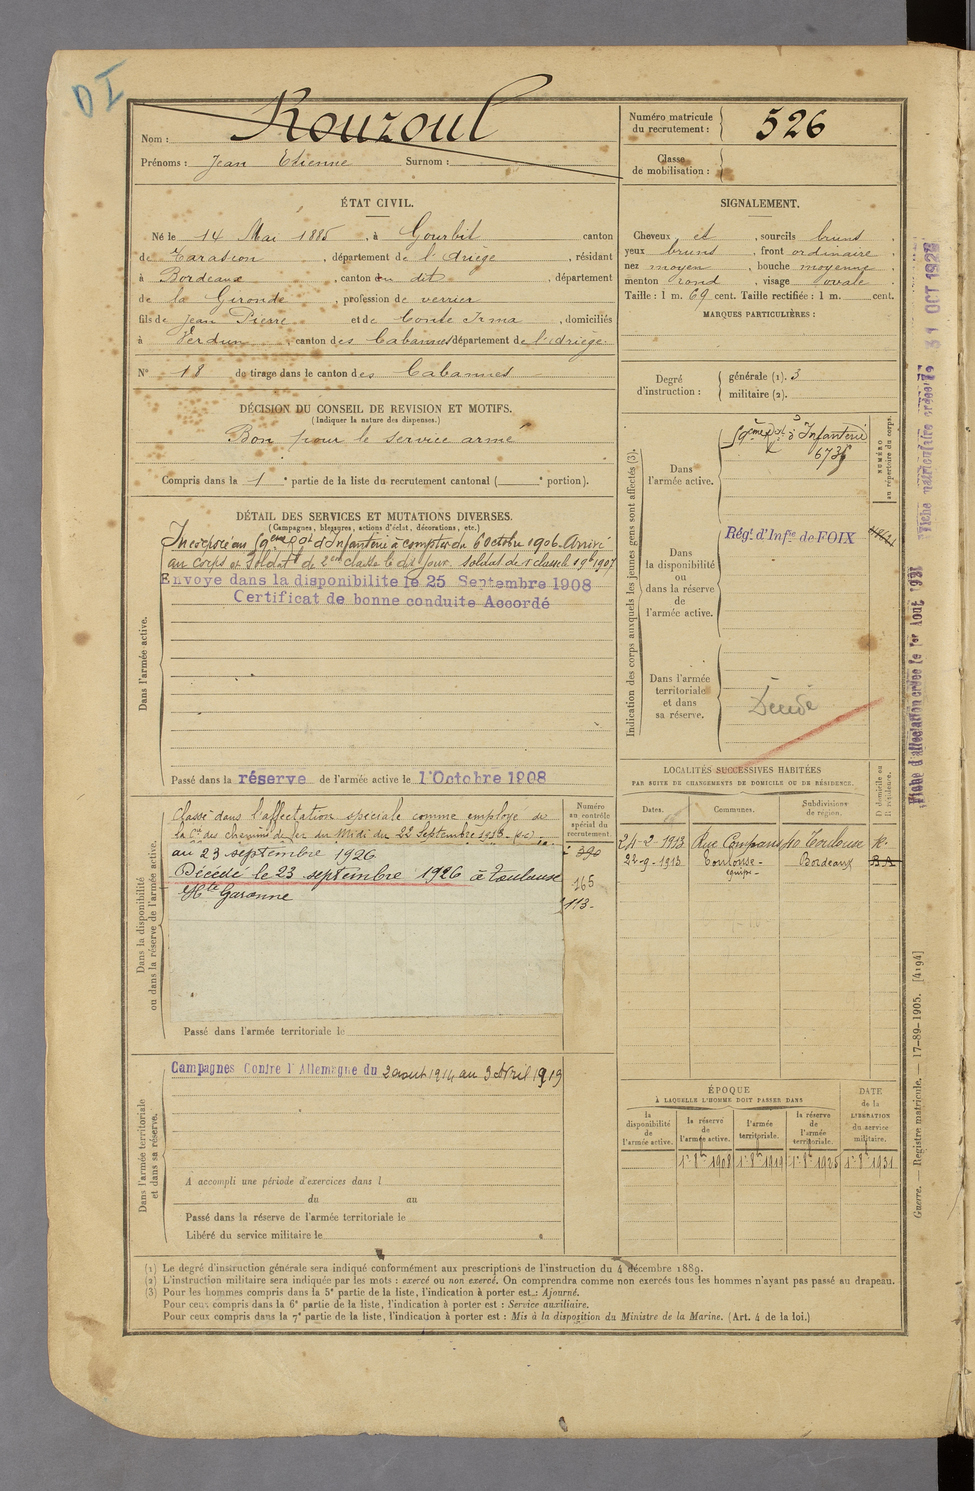 DI
Nom : Rouzoul
Prénoms : Jean Etienne Surnom :
Numéro matricule du recrutement : 526
Classe de mobilisation :
ÉTAT CIVIL.
Né le 14 Mai 1885, à Gourbit canton
de Tarascon, département de l'Ariège, résidant
à Bordeaux, canton du dit, département
de la Gironde, profession de verrier
fils de Jean Pierre et de Conte Irma, domiciliés
à Verdun, canton des Cabannes département de l'Ariège.
N° 18 de tirage dans le canton des Cabannes
DÉCISION DU CONSEIL DE REVISION ET MOTIFS.
(Indiquer la nature des dispenses.)
Bon pour le service armé
Compris dans la 1e partie de la liste du recrutement cantonal ( e portion).
SIGNALEMENT.
Cheveux et, sourcils bruns.
yeux bruns, front ordinaire.
nez moyen, bouche moyenne.
menton rond, visage ovale.
Taille : 1 m. 69 cent. Taille rectifiée : 1 m. cent.
MARQUES PARTICULIÈRES :
Degré d'instruction : générale (1). 3
militaire (2).
DÉTAIL DES SERVICES ET MUTATIONS DIVERSES.
(Campagnes, blessures, actions d'éclat, décorations, etc.)
Dans l'armée active.
Incorporé au d'Infanterie à compter du 6 octobre 1906. Arrivé
au corps et Soldat de 2eme classe le dit jour. soldat de 1 classe le 1907
Envoye dans la disponibilite le 25 Septembre 1908
Certificat de bonne conduite Accordé
Passé dans la réserve de l'armée active le 1r Octobre 1908
Indication des corps auxquels les jeunes gens sont affectés (3).
NUMÉRO au répertoire du corps.
Dans l'armée active.
d'Infanterie
Dans la disponibilité ou dans la réserve de l'armée active.
Régt. d'Infie de FOIX
Dans l'armée territoriale et dans sa réserve.
Décédé
LOCALITÉS SUCCESSIVES HABITÉES
PAR SUITE DE CHANGEMENTS DE DOMICILE OU DE RÉSIDENCE.
Dates. Communes. Subdivisions de région. D domicile ou R résidence.
24-2-1913 Rue Compans 40 Toulouse R.
22-9-1913 Toulouse - Bordeaux
équipe -
Dans la disponibilité ou dans la réserve de l'armée active.
Numéro au contrôle spécial du recrutement.
Classé dans l'affectation spéciale comme employé de
la Cie des chemins de fer du Midi du 22 Septembre 1913
au 23 septembre 1926
Décédé le 23 septembre 1926 à Toulouse
Hte Garonne
390
165
113.
Passé dans l'armée territoriale le
Dans l'armée territoriale et dans sa réserve.
Campagnes Contre l'Allemagne du 2 aout 1914 au 3 Avril 1919
A accompli une période d'exercices dans l
du au
Passé dans la réserve de l'armée territoriale le
Libéré du service militaire le
ÉPOQUE
À LAQUELLE L'HOMME DOIT PASSER DANS
la disponibilité de l'armée active.
la réserve de l'armée active.
l'armée territoriale.
la réserve de l'armée territoriale.
DATE de la LIBÉRATION du service militaire.
1r 8bre 1908 1r 8bre 1919 1r 8bre 1925 1r 8bre 1931
(1) Le degré d'instruction générale sera indiqué conformément aux prescriptions de l'instruction du 4 décembre 1889.
(2) L'instruction militaire sera indiquée par les mots : exercé ou non exercé. On comprendra comme non exercés tous les hommes n'ayant pas passé au drapeau.
(3) Pour les hommes compris dans la 5e partie de la liste, l'indication à porter est : Ajourné.
Pour ceux compris dans la 6e partie de la liste, l'indication à porter est : Service auxiliaire.
Pour ceux compris dans la 7e partie de la liste, l'indication à porter est : Mis à la disposition du Ministre de la Marine. (Art. 4 de la loi.)
Fiche matriculaire créée le 31 OCT 1928
Fiche d'affectation créée le 1er Aout 1931
Guerre. — Registre matricule. — 17-89-1905. [4194]